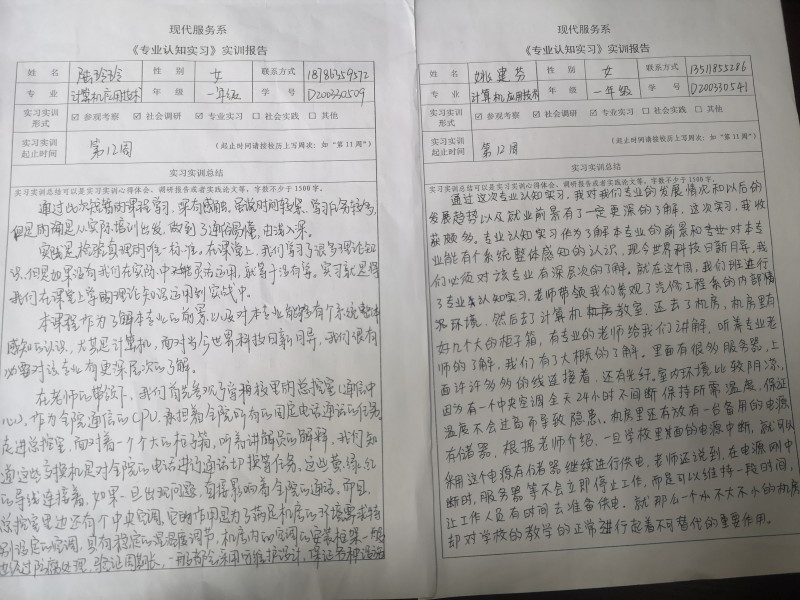 现代服务系
《专业认知实习》实训报告
姓 名 陆玲玲 性 别 女 联系方式 18786359572
专 业 计算机应用技术 年 级 一年级 学 号 D200330509
实习实训形式 ☑ 参观考察 ☑ 社会调研 ☑ 专业实习 ☐ 社会实践 ☐ 其他
实习实训起止时间 第12周 (起止时间请按校历上写周次: 如“第11周”)
实习实训总结
实习实训总结可以是实习实训心得体会、调研报告或者实践论文等，字数不少于1500字。
通过此次短暂的课程学习，深有感触，虽说时间较紧，学习任务较多，
但是的确是从实际培训出发，做到了通俗易懂，由浅入深。
实践是检验真理的唯一标准。在课堂上，我们学习了很多理论知
识，但是如果没有我们在实际中灵活运用，就等于没有等。实习就是将
我们在课堂上学的理论知识运用到实战中。
本课程作为了解本专业的前景以及对本专业能够有个系统整体
感知的认识，尤其是计算机，面对当今世界科技日新月异，我们很有
必要对该专业有更深层次的了解。
在老师的带领下，我们首先参观了学校校里的总控室(通信中
心)，作为全院通信的CPU，承担着全院所有的固定电话通话的任务。
走进总控室，面对着一个个大的柜子箱，听着讲解员的解释，我们知
道这些交换机是对全院的电话进行通话切换等任务，这些黄、绿、红
的导线连接着，如果一旦出现问题，直接影响着全院的通话。而且，
总控室里边还有个中央空调，它的作用是为了满足机房的环境需求特
别设定的空调，具有稳定的温湿度调节，机房内的空调的安装框架一般
现代服务系
《专业认知实习》实训报告
姓 名 姚建芬 性 别 女 联系方式 13511855286
专 业 计算机应用技术 年 级 一年级 学 号 D200330541
实习实训形式 ☑ 参观考察 ☑ 社会调研 ☑ 专业实习 ☐ 社会实践 ☐ 其他
实习实训起止时间 第12周 (起止时间请按校历上写周次: 如“第11周”)
实习实训总结
实习实训总结可以是实习实训心得体会、调研报告或者实践论文等，字数不少于1500字。
通过这次专业认知实习，我对我们专业的发展情况和以后的
发展趋势以及就业前景有了一定更深的了解，这次实习，我收
获颇多。专业认知实习作为了解本专业的前景和专业对本专
业能有个系统整体感知的认识，现今世界科技日新月异，我
们必须对该专业有深层次的了解。就在这个周，我们班进行
了专业认知实习，老师带领我们参观了汽修工程系的内部情
况环境，然后去了计算机机房教室，还去了机房，机房里有
好几个大的柜子箱，有专业的老师给我们讲解，听着专业老
师的了解，我们有了大概的了解。里面有很多服务器，上
面许许多多的线连接着，还有光纤。室内环境比较阴凉，
因为有一个中央空调全天24小时不间断保持所需温度，保证
温度不会过高而导致隐患，机房里还有放有一台备用的电源
存储器，根据老师介绍，一旦学校里面的电源中断，就可以
采用这个电源存储器继续进行供电。老师还说到，在电源刚中
断时，服务器等不会立即停止工作，而是可以维持一段时间，
让工作人员有时间去准备供电。就那么一个小不大不小的机房
却对学校的教学的正常进行起着不可替代的重要作用。